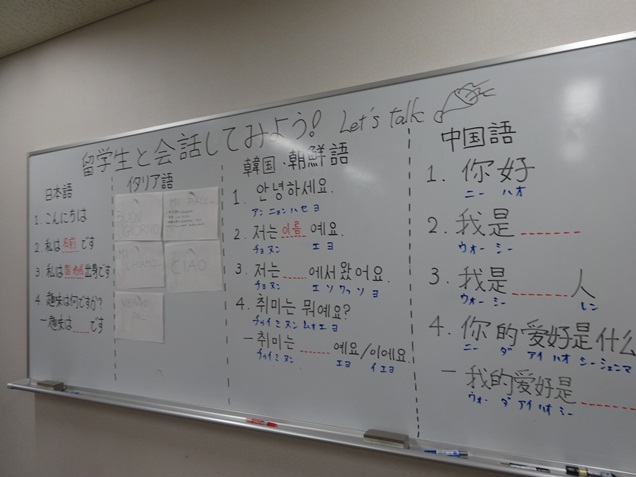 留学生と会話してみよう! Let's talk
日本語
1. こんにちは
2 私は名前です
3 私は 出身です
4 趣味は何ですか?
ー趣味は です
イタリア語
BUON
GIORNO
CIAO
韓国・朝鮮語
1. 안녕하세요.
アンニョンハセヨ
2. 저는 이름 예요.
チョヌン エヨ
3. 저는 에서 왔어요.
チョヌン エソワッソヨ
4. 취미는 뭐예요?
チュイミヌンムォエヨ
ー 취미는 예요/이에요.
チュイミヌン エヨ イエヨ
中国語
1. 你好
ニー ハオ
2. 我是
ウォー シー
3. 我是 人
ウォー シー レン
4. 你的爱好是什么
ニー ダ アイ ハオ シー シェンマ
ー 我的爱好是
ウォー ダ アイ ハオ シー